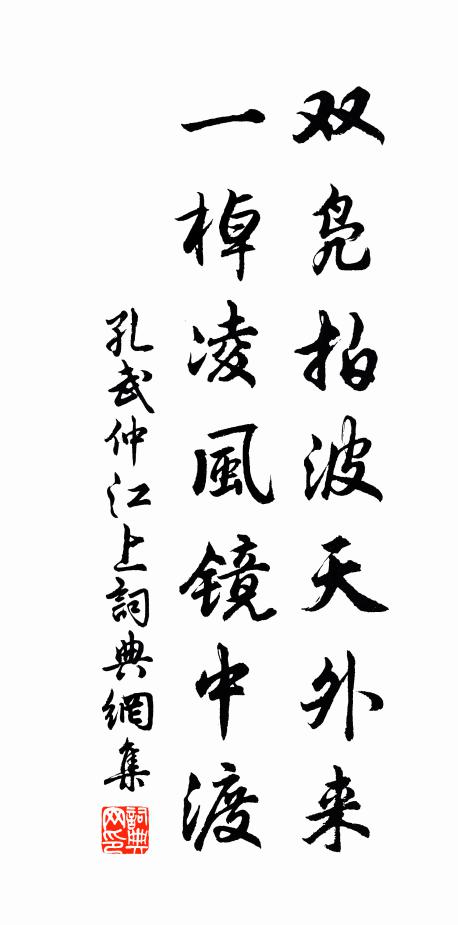 双凫拍波天外来
一棹凌風镜中渡
孔武仲江上詞典網集
詞典网印